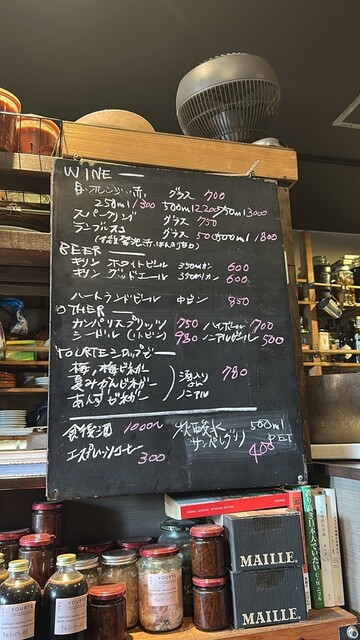 WINE
白・オレンジ・赤 グラス 700
250ml 1300 500ml 2200 750ml 3000
スパークリング グラス 750
ランブルスコ グラス 500 500ml 1800
BEER
キリン ホワイトビール 350mlカン 600
キリン グッドエール 350mlカン 600
ハートランドビール 中ビン 850
OTHER
カンパリスプリッツ 750 ハイボール 700
シードル (小ビン) 980 ノンアルビール 500
梅、梅ビネガー
夏みかんビネガー 酒入り 780
あんずビネガー ノンアル
食後酒 1000〜 炭酸水 500ml
サンペレグリノ PET
エスプレッソコーヒー 300 400
MAILLE.
MAILLE.